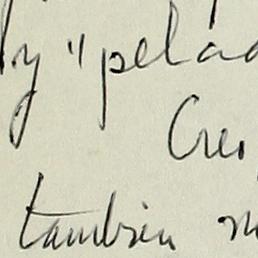 y "pelad
Creo
tambien n